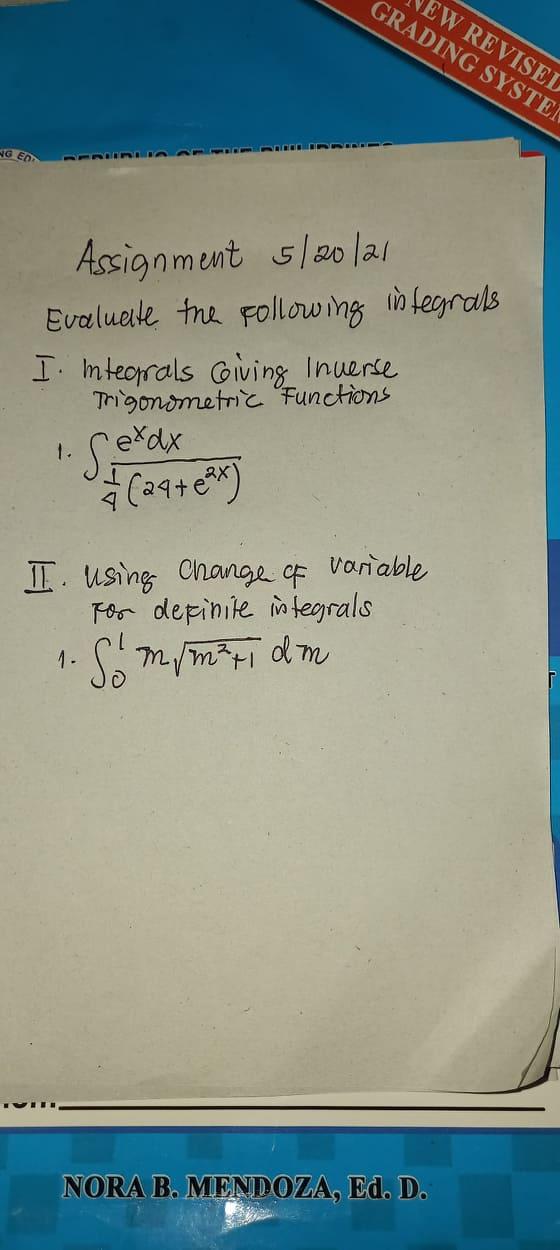 NEW REVISED
GRADING SYSTEM
REPUBLIC OF THE PHILIPPINES
Assignment 5/20/21
Evaluate the Following integrals
I. Integrals Giving Inverse
Trigonometric Functions
1. ∫ e^x dx / (1/4 (24 + e^2x))
II. Using Change of variable
For definite integrals
1. ∫₀¹ m√(m²+1) dm
NORA B. MENDOZA, Ed. D.